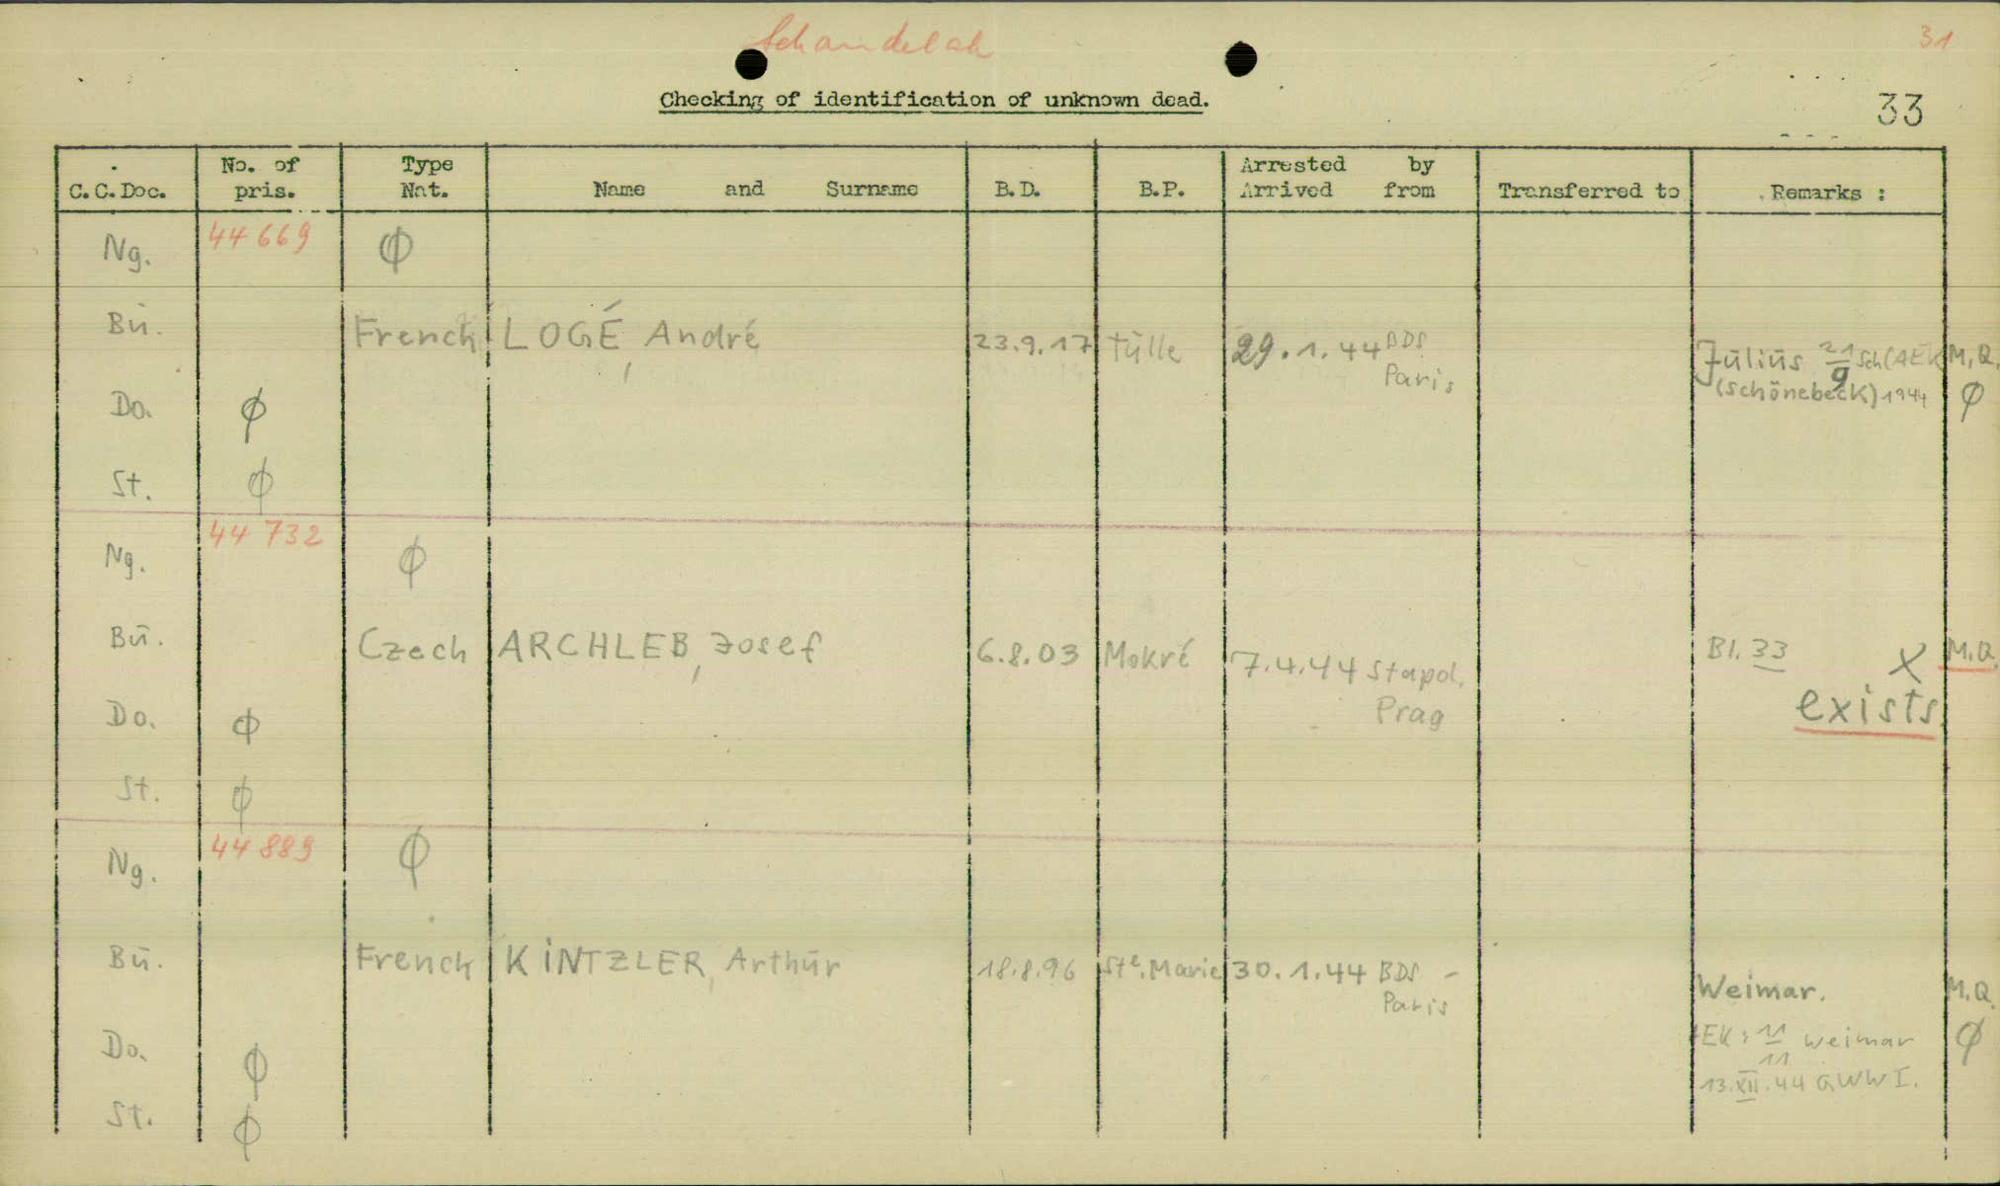 Schandelah
31
Checking of identification of unknown dead.
33
C.C.Doc. No. of pris. Type Nat. Name and Surname B.D. B.P. Arrested by Arrived from Transferred to Remarks :
Ng. 44 669 φ
Bü. French LOGÉ, André 23.9.17 Tülle 29.1.44 BDS Paris Jülius 21/9 Sch(AEK M.Q.
(Schönebeck) 1944 φ
Do. φ
St. φ
Ng. 44 732 φ
Bü. Czech ARCHLEB, Josef 6.8.03 Mokré 7.4.44 Stapol. Prag Bl. 33 X M.Q.
exists
Do. φ
St. φ
Ng. 44 889 φ
Bü. French KINTZLER, Arthür 18.8.96 Ste. Marie 30.1.44 BDS - Paris Weimar. M.Q.
Do. φ EK: 11/11 Weimar φ
13.XII.44 GWW I.
St. φ